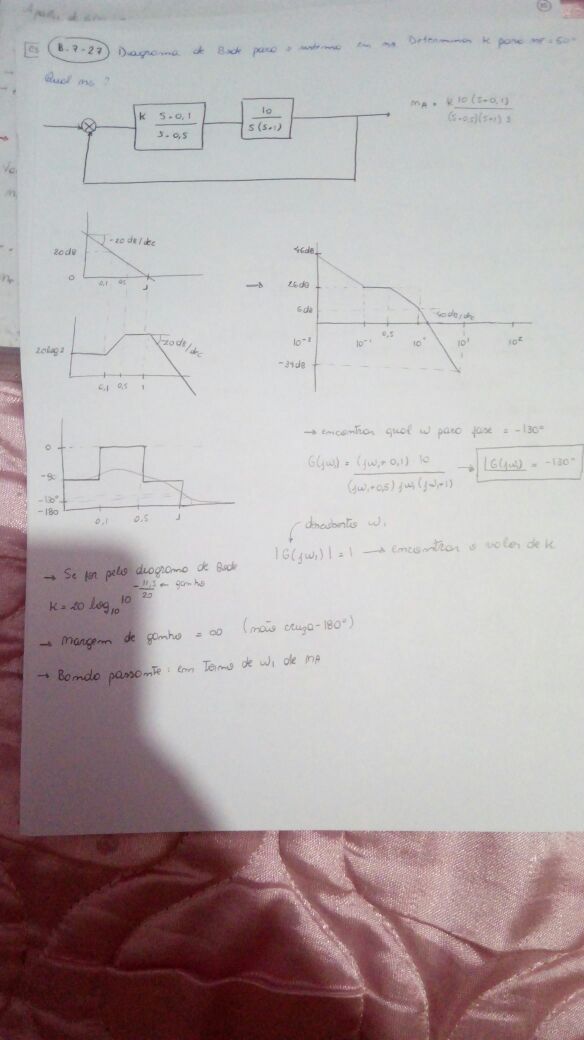 B.7-27) Diagrama de Bode para o sistema em MA Determinar K para MF = 50°
Qual MG ?
K S+0,1
S+0,5
10
S(S+1)
MA = K 10 (S+0,1)
(S+0,5)(S+1) S
-20 dB/dec
20dB
0
0,1 0,5 1
20log2
-20 dB/dec
0,1 0,5 1
46dB
26dB
6dB
-40 dB/dec
10⁻² 10⁻¹ 0,5 10⁰ 10¹ 10²
-34dB
0
-90
-130°
-180
0,1 0,5 1
→ encontrar qual ω para fase = -130°
G(jω₁) = (jω₁+0,1) 10
(jω₁+0,5) jω₁ (jω₁+1)
→ G(jω₁) = -130°
descobertos ω₁
|G(jω₁)| = 1 → encontrar o valor de K
→ Se for pelo diagrama de Bode
K = 20 log₁₀ 10
20
ganho
→ Margem de ganho = ∞ (não cruza -180°)
→ Banda passante: em Termo de ω₁ de MA